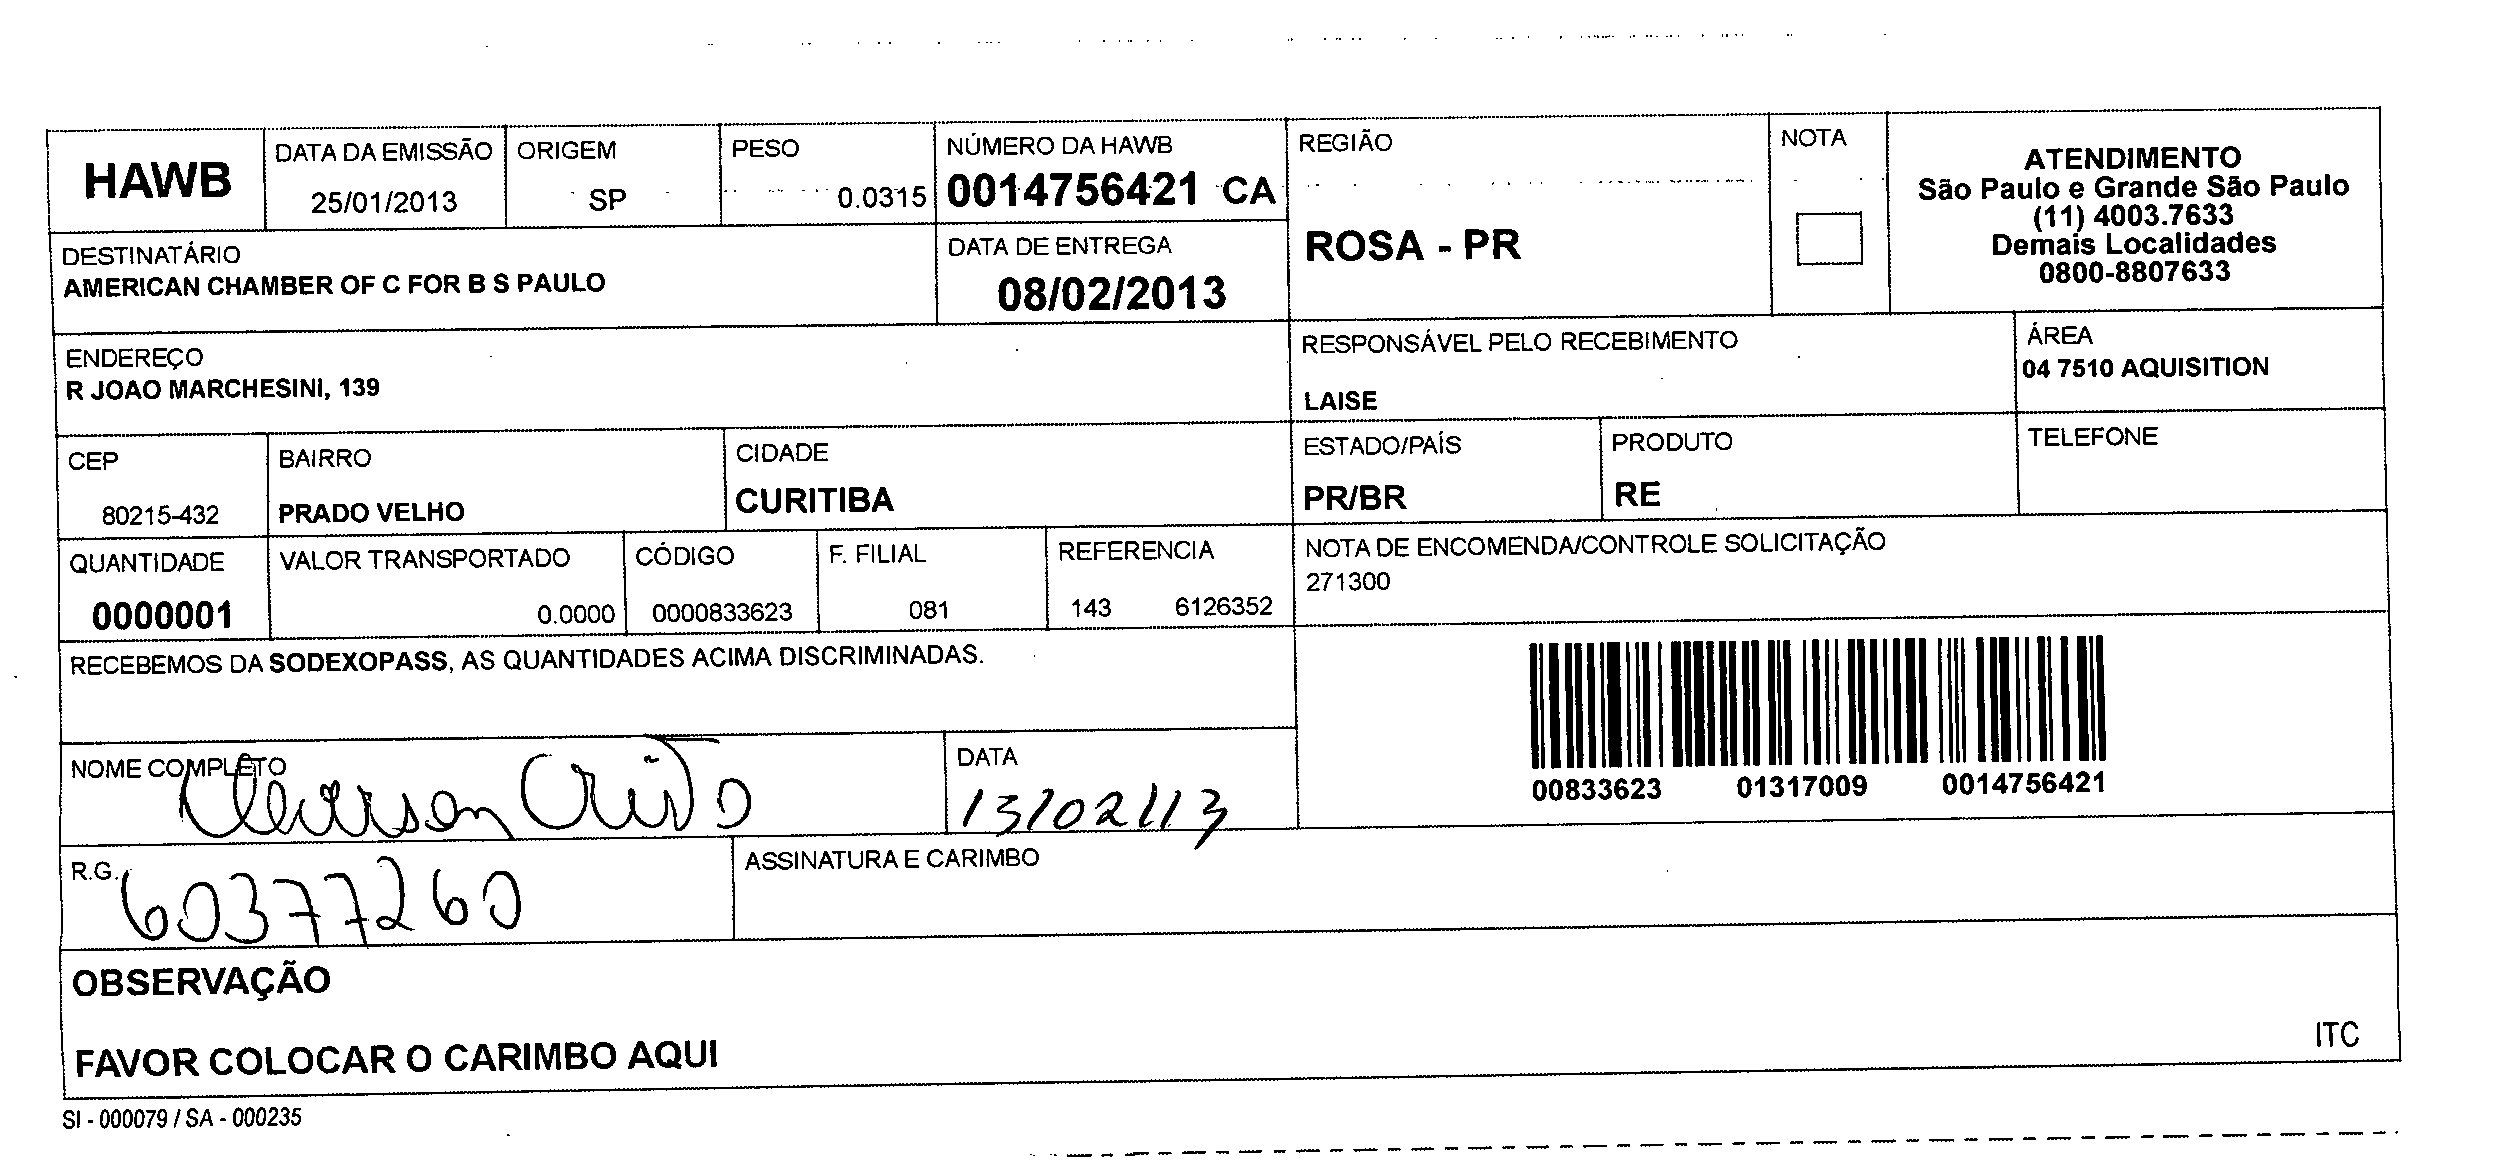 HAWB
DATA DA EMISSÃO
25/01/2013
ORIGEM
SP
PESO
0.0315
NÚMERO DA HAWB
0014756421 CA
REGIÃO
ROSA - PR
NOTA
ATENDIMENTO
São Paulo e Grande São Paulo
(11) 4003.7633
Demais Localidades
0800-8807633
DESTINATÁRIO
AMERICAN CHAMBER OF C FOR B S PAULO
DATA DE ENTREGA
08/02/2013
ENDEREÇO
R JOAO MARCHESINI, 139
RESPONSÁVEL PELO RECEBIMENTO
LAISE
ÁREA
04 7510 AQUISITION
CEP
80215-432
BAIRRO
PRADO VELHO
CIDADE
CURITIBA
ESTADO/PAÍS
PR/BR
PRODUTO
RE
TELEFONE
QUANTIDADE
0000001
VALOR TRANSPORTADO
0.0000
CÓDIGO
0000833623
F. FILIAL
081
REFERENCIA
143 6126352
NOTA DE ENCOMENDA/CONTROLE SOLICITAÇÃO
271300
RECEBEMOS DA SODEXOPASS, AS QUANTIDADES ACIMA DISCRIMINADAS.
00833623 01317009 0014756421
NOME COMPLETO
DATA
13/02/13
R.G.
60377260
ASSINATURA E CARIMBO
OBSERVAÇÃO
FAVOR COLOCAR O CARIMBO AQUI
ITC
SI - 000079 / SA - 000235